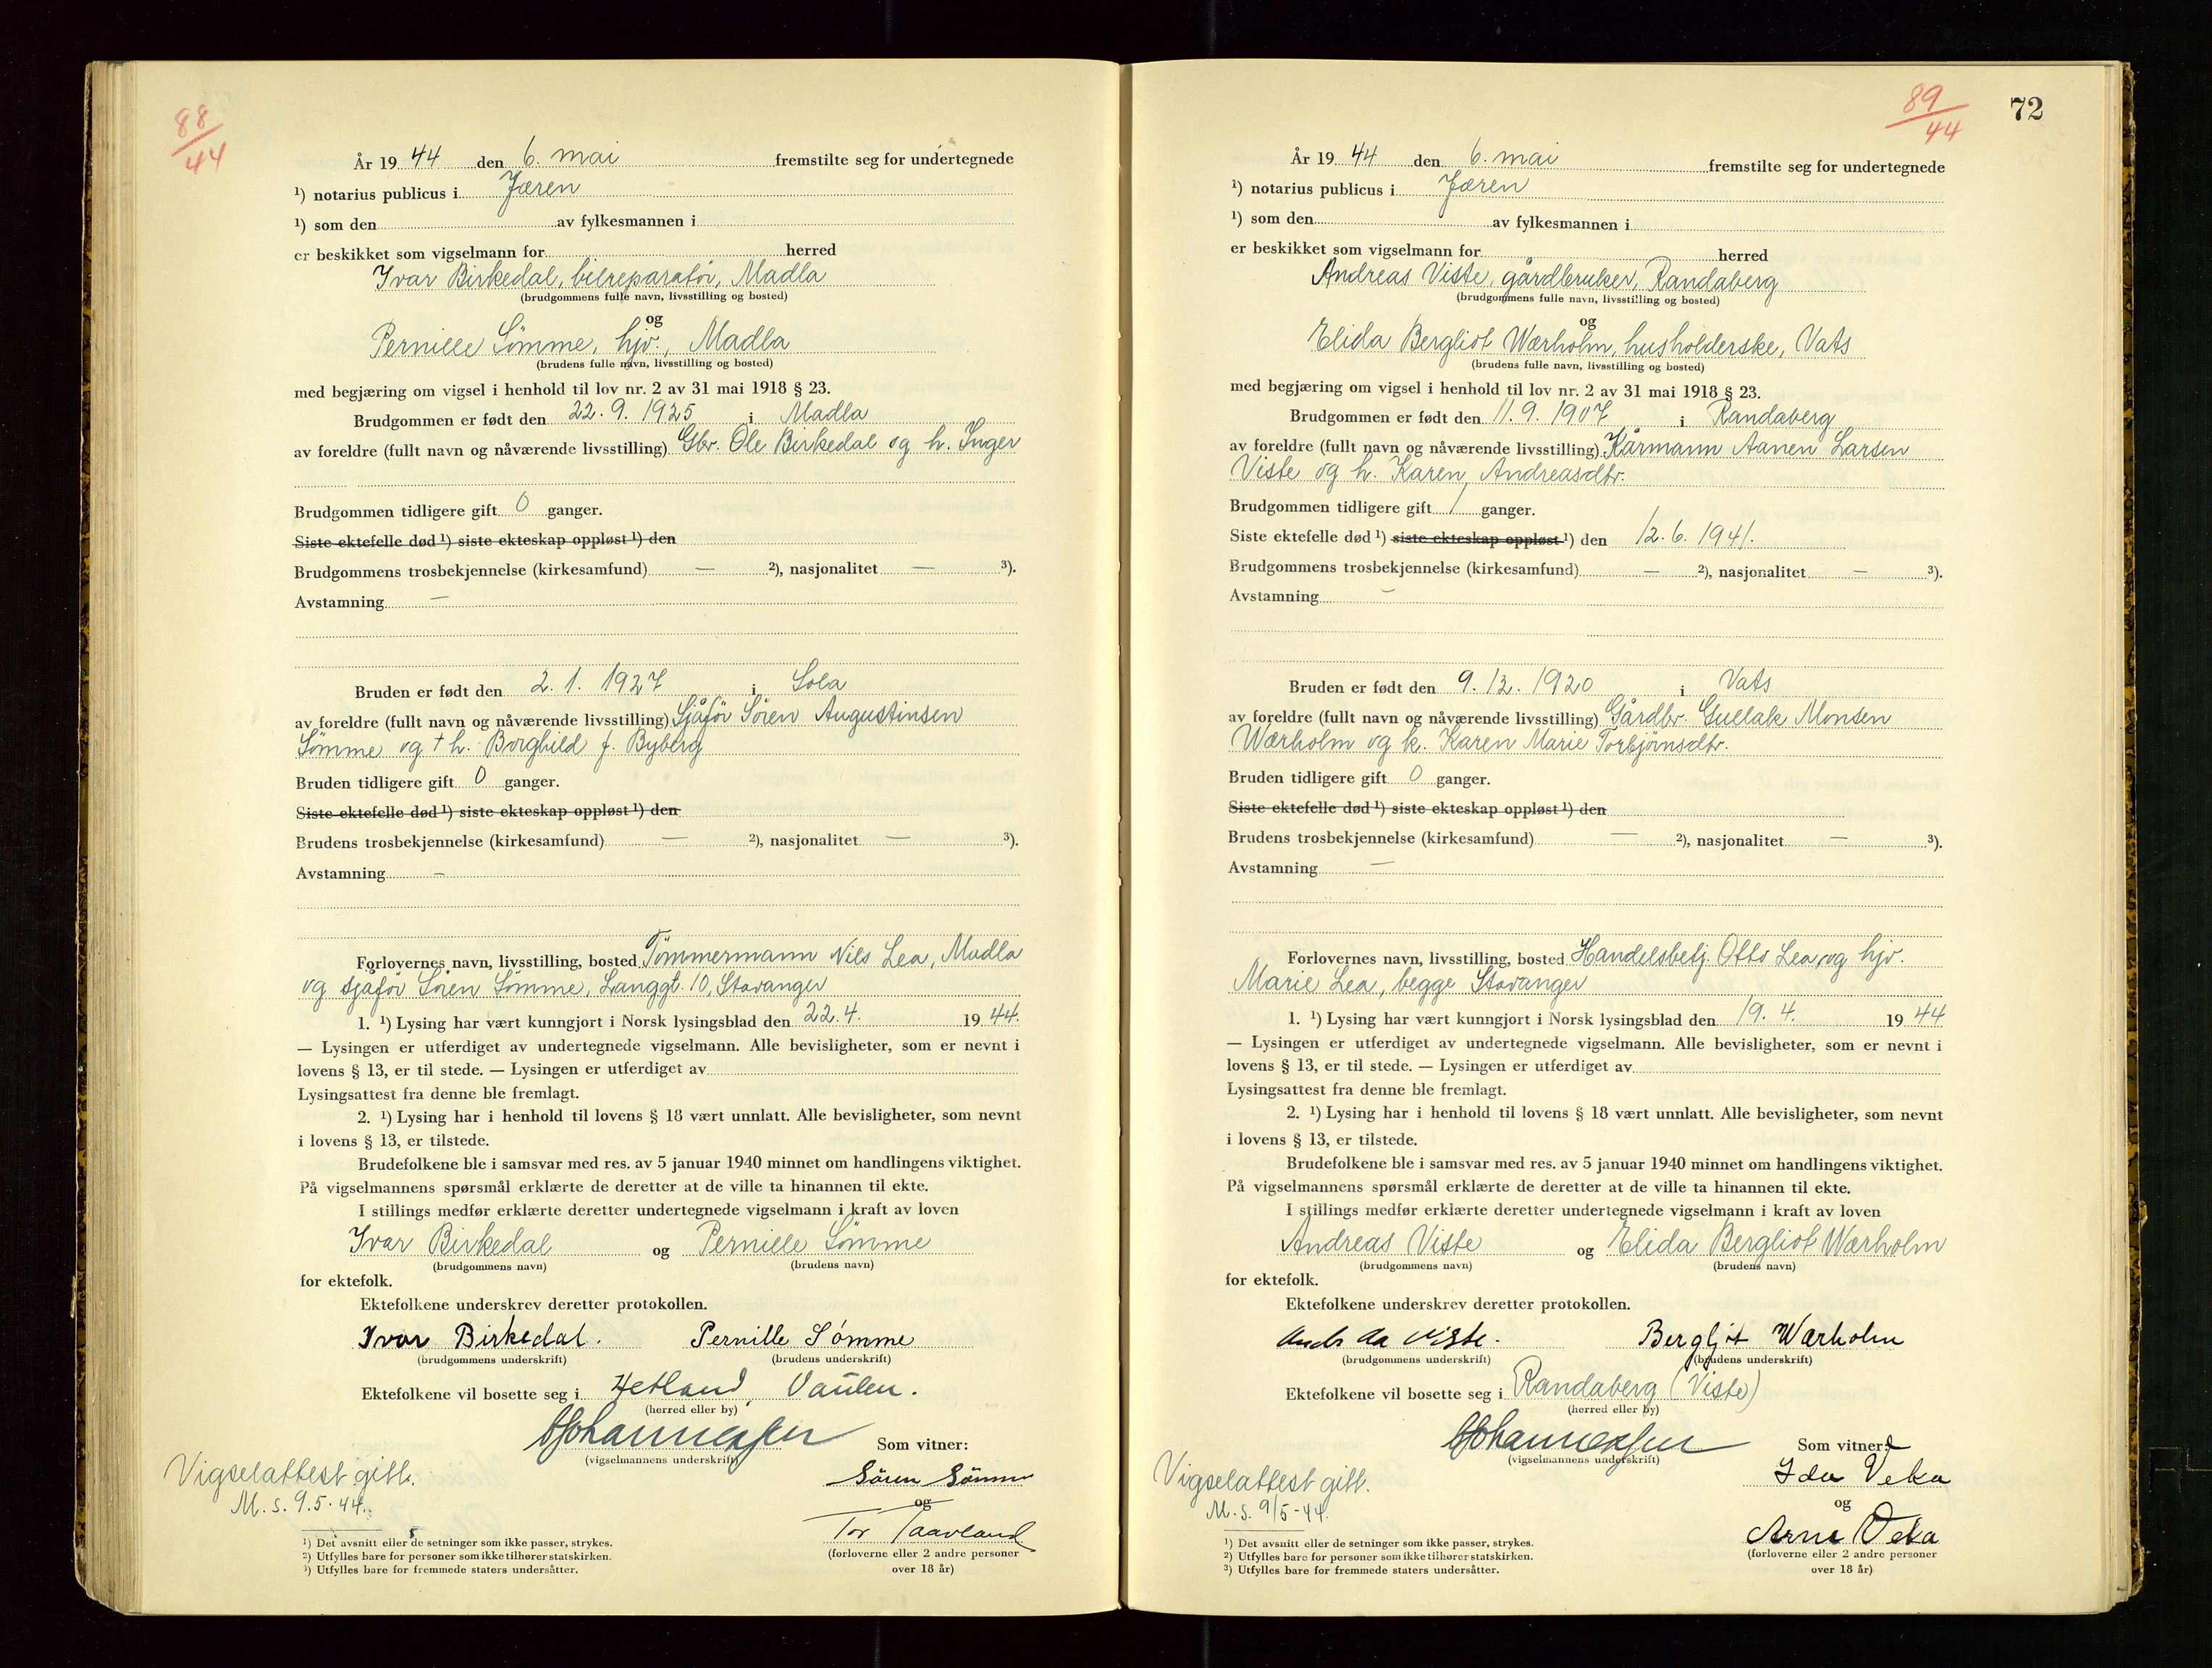 88
44
År 19 44 den 6. mai fremstilte seg for undertegnede
¹) notarius publicus i Jæren
¹) som den av fylkesmannen i
er beskikket som vigselmann for herred
Ivar Birkedal, bilreparatør, Madla
(brudgommens fulle navn, livsstilling og bosted)
og
Pernille Sömme, hjv., Madla
(brudens fulle navn, livsstilling og bosted)
med begjæring om vigsel i henhold til lov nr. 2 av 31 mai 1918 § 23.
Brudgommen er født den 22. 9. 1925 i Madla
av foreldre (fullt navn og nåværende livsstilling) Gbr. Ole Birkedal og h. Inger
Brudgommen tidligere gift 0 ganger.
Siste ektefelle død ¹) siste ekteskap oppløst ¹) den
Brudgommens trosbekjennelse (kirkesamfund) — ²), nasjonalitet — ³).
Avstamning —
Bruden er født den 2. 1. 1927 i Sola
av foreldre (fullt navn og nåværende livsstilling) Sjåför Sören Augustinsen
Sömme og † h. Borghild f. Byberg
Bruden tidligere gift 0 ganger.
Siste ektefelle død ¹) siste ekteskap oppløst ¹) den
Brudens trosbekjennelse (kirkesamfund) — ²), nasjonalitet — ³).
Avstamning —
Forlovernes navn, livsstilling, bosted Tömmermann Nils Lea, Madla
og sjåför Sören Sömme, Langgt. 10, Stavanger
1. ¹) Lysing har vært kunngjort i Norsk lysingsblad den 22. 4. 19 44.
— Lysingen er utferdiget av undertegnede vigselmann. Alle bevisligheter, som er nevnt i
lovens § 13, er til stede. — Lysingen er utferdiget av
Lysingsattest fra denne ble fremlagt.
2. ¹) Lysing har i henhold til lovens § 18 vært unnlatt. Alle bevisligheter, som nevnt
i lovens § 13, er tilstede.
Brudefolkene ble i samsvar med res. av 5 januar 1940 minnet om handlingens viktighet.
På vigselmannens spørsmål erklærte de deretter at de ville ta hinannen til ekte.
I stillings medfør erklærte deretter undertegnede vigselmann i kraft av loven
Ivar Birkedal og Pernille Sömme
(brudgommens navn) (brudens navn)
for ektefolk.
Ektefolkene underskrev deretter protokollen.
Ivar Birkedal. Pernille Sömme
(brudgommens underskrift) (brudens underskrift)
Ektefolkene vil bosette seg i Hetland, Vaulen.
(herred eller by)
Johannessen
(vigselmannens underskrift)
Som vitner:
Sören Sömme
og
Tor Taarland
(forloverne eller 2 andre personer
over 18 år)
Vigselattest gitt.
M. S. 9.5.44.
¹) Det avsnitt eller de setninger som ikke passer, strykes.
²) Utfylles bare for personer som ikke tilhører statskirken.
³) Utfylles bare for fremmede staters undersåtter.
89
44
72
År 19 44 den 6. mai fremstilte seg for undertegnede
¹) notarius publicus i Jæren
¹) som den av fylkesmannen i
er beskikket som vigselmann for herred
Andreas Viste, gårdbruker, Randaberg
(brudgommens fulle navn, livsstilling og bosted)
og
Elida Bergliot Wærholm, husholderske, Vats
(brudens fulle navn, livsstilling og bosted)
med begjæring om vigsel i henhold til lov nr. 2 av 31 mai 1918 § 23.
Brudgommen er født den 11. 9. 1907 i Randaberg
av foreldre (fullt navn og nåværende livsstilling) Kårmann Aanen Larsen
Viste og h. Karen Andreasdtr.
Brudgommen tidligere gift 1 ganger.
Siste ektefelle død ¹) siste ekteskap oppløst ¹) den 12. 6. 1941.
Brudgommens trosbekjennelse (kirkesamfund) — ²), nasjonalitet — ³).
Avstamning —
Bruden er født den 9. 12. 1920 i Vats
av foreldre (fullt navn og nåværende livsstilling) Gårdbr. Gullak Monsen
Wærholm og h. Karen Marie Torbjörnsdtr.
Bruden tidligere gift 0 ganger.
Siste ektefelle død ¹) siste ekteskap oppløst ¹) den
Brudens trosbekjennelse (kirkesamfund) — ²), nasjonalitet — ³).
Avstamning —
Forlovernes navn, livsstilling, bosted Handelsbetj. Otto Lea, og hjv.
Marie Lea, begge Stavanger
1. ¹) Lysing har vært kunngjort i Norsk lysingsblad den 19. 4. 19 44
— Lysingen er utferdiget av undertegnede vigselmann. Alle bevisligheter, som er nevnt i
lovens § 13, er til stede. — Lysingen er utferdiget av
Lysingsattest fra denne ble fremlagt.
2. ¹) Lysing har i henhold til lovens § 18 vært unnlatt. Alle bevisligheter, som nevnt
i lovens § 13, er tilstede.
Brudefolkene ble i samsvar med res. av 5 januar 1940 minnet om handlingens viktighet.
På vigselmannens spørsmål erklærte de deretter at de ville ta hinannen til ekte.
I stillings medfør erklærte deretter undertegnede vigselmann i kraft av loven
Andreas Viste og Elida Bergliot Wærholm
(brudgommens navn) (brudens navn)
for ektefolk.
Ektefolkene underskrev deretter protokollen.
Viste. Bergljot Wærholm
(brudgommens underskrift) (brudens underskrift)
Ektefolkene vil bosette seg i Randaberg (Viste)
(herred eller by)
Johannessen
(vigselmannens underskrift)
Som vitner:
Ida Veka
og
Arne Veka
(forloverne eller 2 andre personer
over 18 år)
Vigselattest gitt.
M. S. 9/5-44.
¹) Det avsnitt eller de setninger som ikke passer, strykes.
²) Utfylles bare for personer som ikke tilhører statskirken.
³) Utfylles bare for fremmede staters undersåtter.